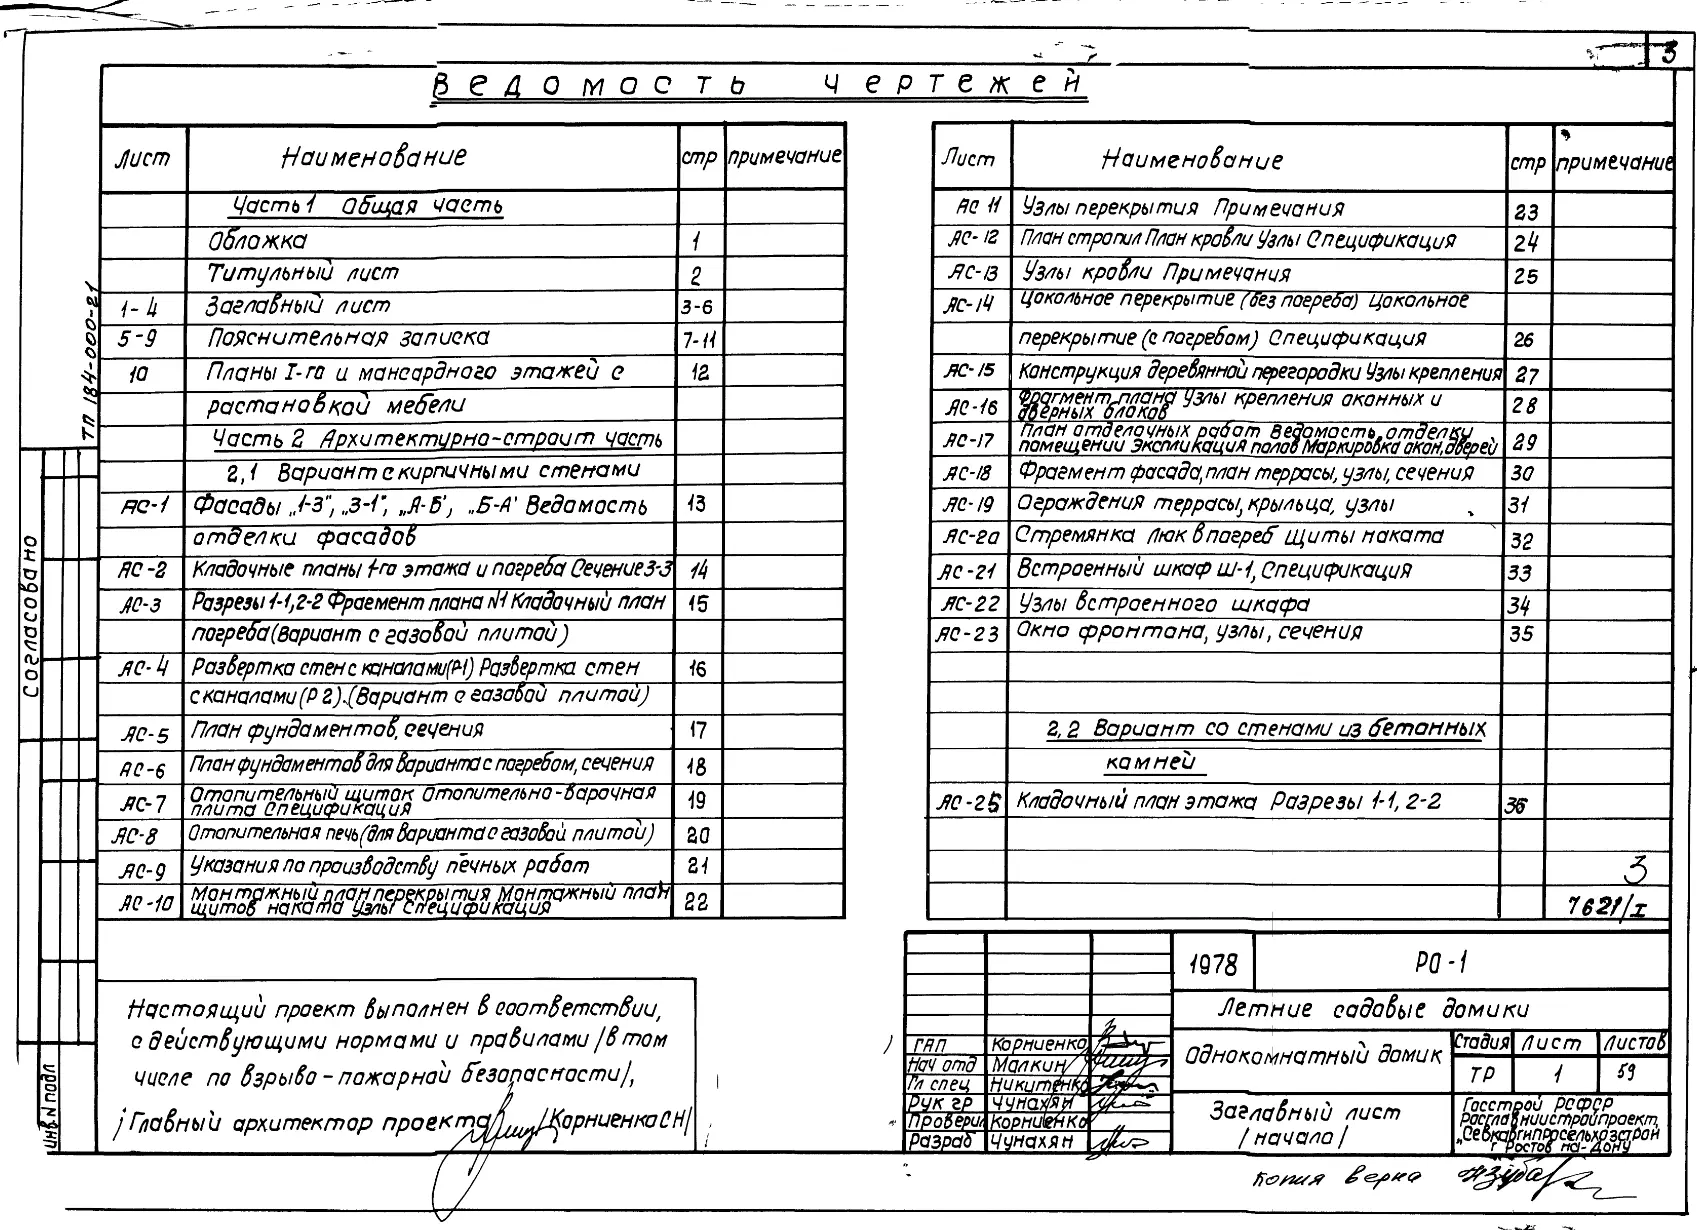 3
Ведомость чертежей
Лист Наименование стр примечание
Часть 1 Общая часть
Обложка 1
Титульный лист 2
1-4 Заглавный лист 3-6
5-9 Пояснительная записка 7-11
10 Планы I-го и мансардного этажей с 12
растановкой мебели
Часть 2 Архитектурно-строит часть
2,1 Вариант с кирпичными стенами
АС-1 Фасады „1-3", „3-1", „А-Б', „Б-А' Ведомость 13
отделки фасадов
АС-2 Кладочные планы 1-го этажа и погреба Сечение 3-3 14
АС-3 Разрезы 1-1, 2-2 Фрагмент плана N1 Кладочный план 15
погреба (вариант с газовой плитой)
АС-4 Развертка стен с каналами (Р-1) Развертка стен 16
с каналами (Р 2). (Вариант с газовой плитой)
АС-5 План фундаментов, сечения 17
АС-6 План фундаментов для варианта с погребом, сечения 18
АС-7 Отопительный щиток Отопительно-варочная 19
плита Спецификация
АС-8 Отопительная печь (для варианта с газовой плитой) 20
АС-9 Указания по производству печных работ 21
АС-10 Монтажный план перекрытия Монтажный план 22
щитов наката Узлы Спецификация
Лист Наименование стр примечание
АС 11 Узлы перекрытия Примечания 23
АС-12 План стропил План кровли Узлы Спецификация 24
АС-13 Узлы кровли Примечания 25
АС-14 Цокольное перекрытие (без погреба) Цокольное
перекрытие (с погребом) Спецификация 26
АС-15 Конструкция деревянной перегородки Узлы крепления 27
АС-16 Фрагмент плана Узлы крепления оконных и 28
дверных блоков
АС-17 План отделочных работ Ведомость отделки 29
помещений Экспликация полов Маркировка окон, дверей
АС-18 Фрагмент фасада, план террасы, узлы, сечения 30
АС-19 Ограждения террасы, крыльца, узлы 31
АС-20 Стремянка Люк в погреб Щиты наката 32
АС-21 Встроенный шкаф Ш-1, Спецификация 33
АС-22 Узлы встроенного шкафа 34
АС-23 Окно фронтона, узлы, сечения 35
2,2 Вариант со стенами из бетонных
камней
АС-25 Кладочный план этажа Разрезы 1-1, 2-2 36
3
7621/I
ТП 184-000-21
Согласовано
Инв.N подл
Настоящий проект выполнен в соответствии,
с действующими нормами и правилами /в том
числе по взрыво-пожарной безопасности/,
/Главный архитектор проекта /Корниенко СН/
1978 РО-1
Летние садовые домики
ГАП Корниенко
Нач отд Малкин
Гл спец Никитенко
Рук гр Чунахян
Проверил Корниенко
Разраб Чунахян
Однокомнатный домик
Стадия Лист Листов
ТР 1 59
Заглавный лист
/начало/
Госстрой РСФСР
Росглавниистройпроект,
„Севкавгипросельхозстрой
г Ростов на-Дону
Копия верна